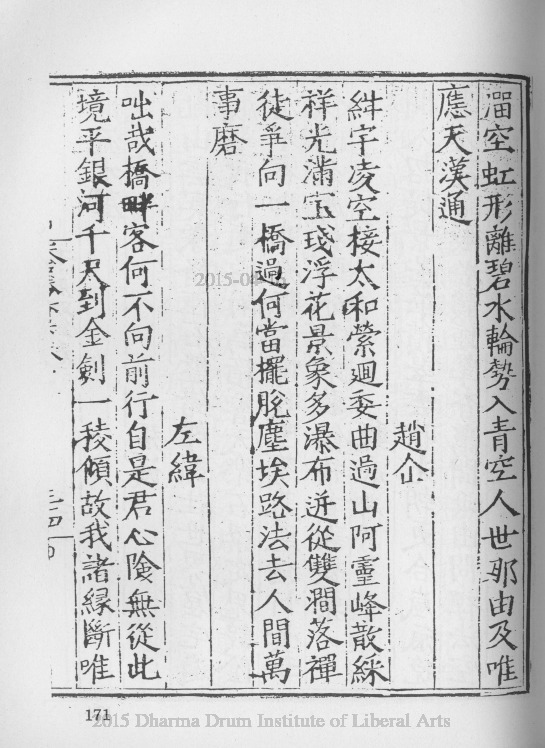 溜空虹形離碧水輪勢入青空人世那由及唯
應天漢通
趙企
紺宇凌空接太和縈迴委曲過山阿靈峰散綵
祥光滿宝琖浮花景象多瀑布迸從雙澗落禪
徒爭向一橋過何當擺脫塵埃路法去人間萬
事磨
左緯
咄哉橋畔客何不向前行自是君心險無從此
境平銀河千尺到金劍一稜傾故我諸緣斷唯
171
2015 Dharma Drum Institute of Liberal Arts